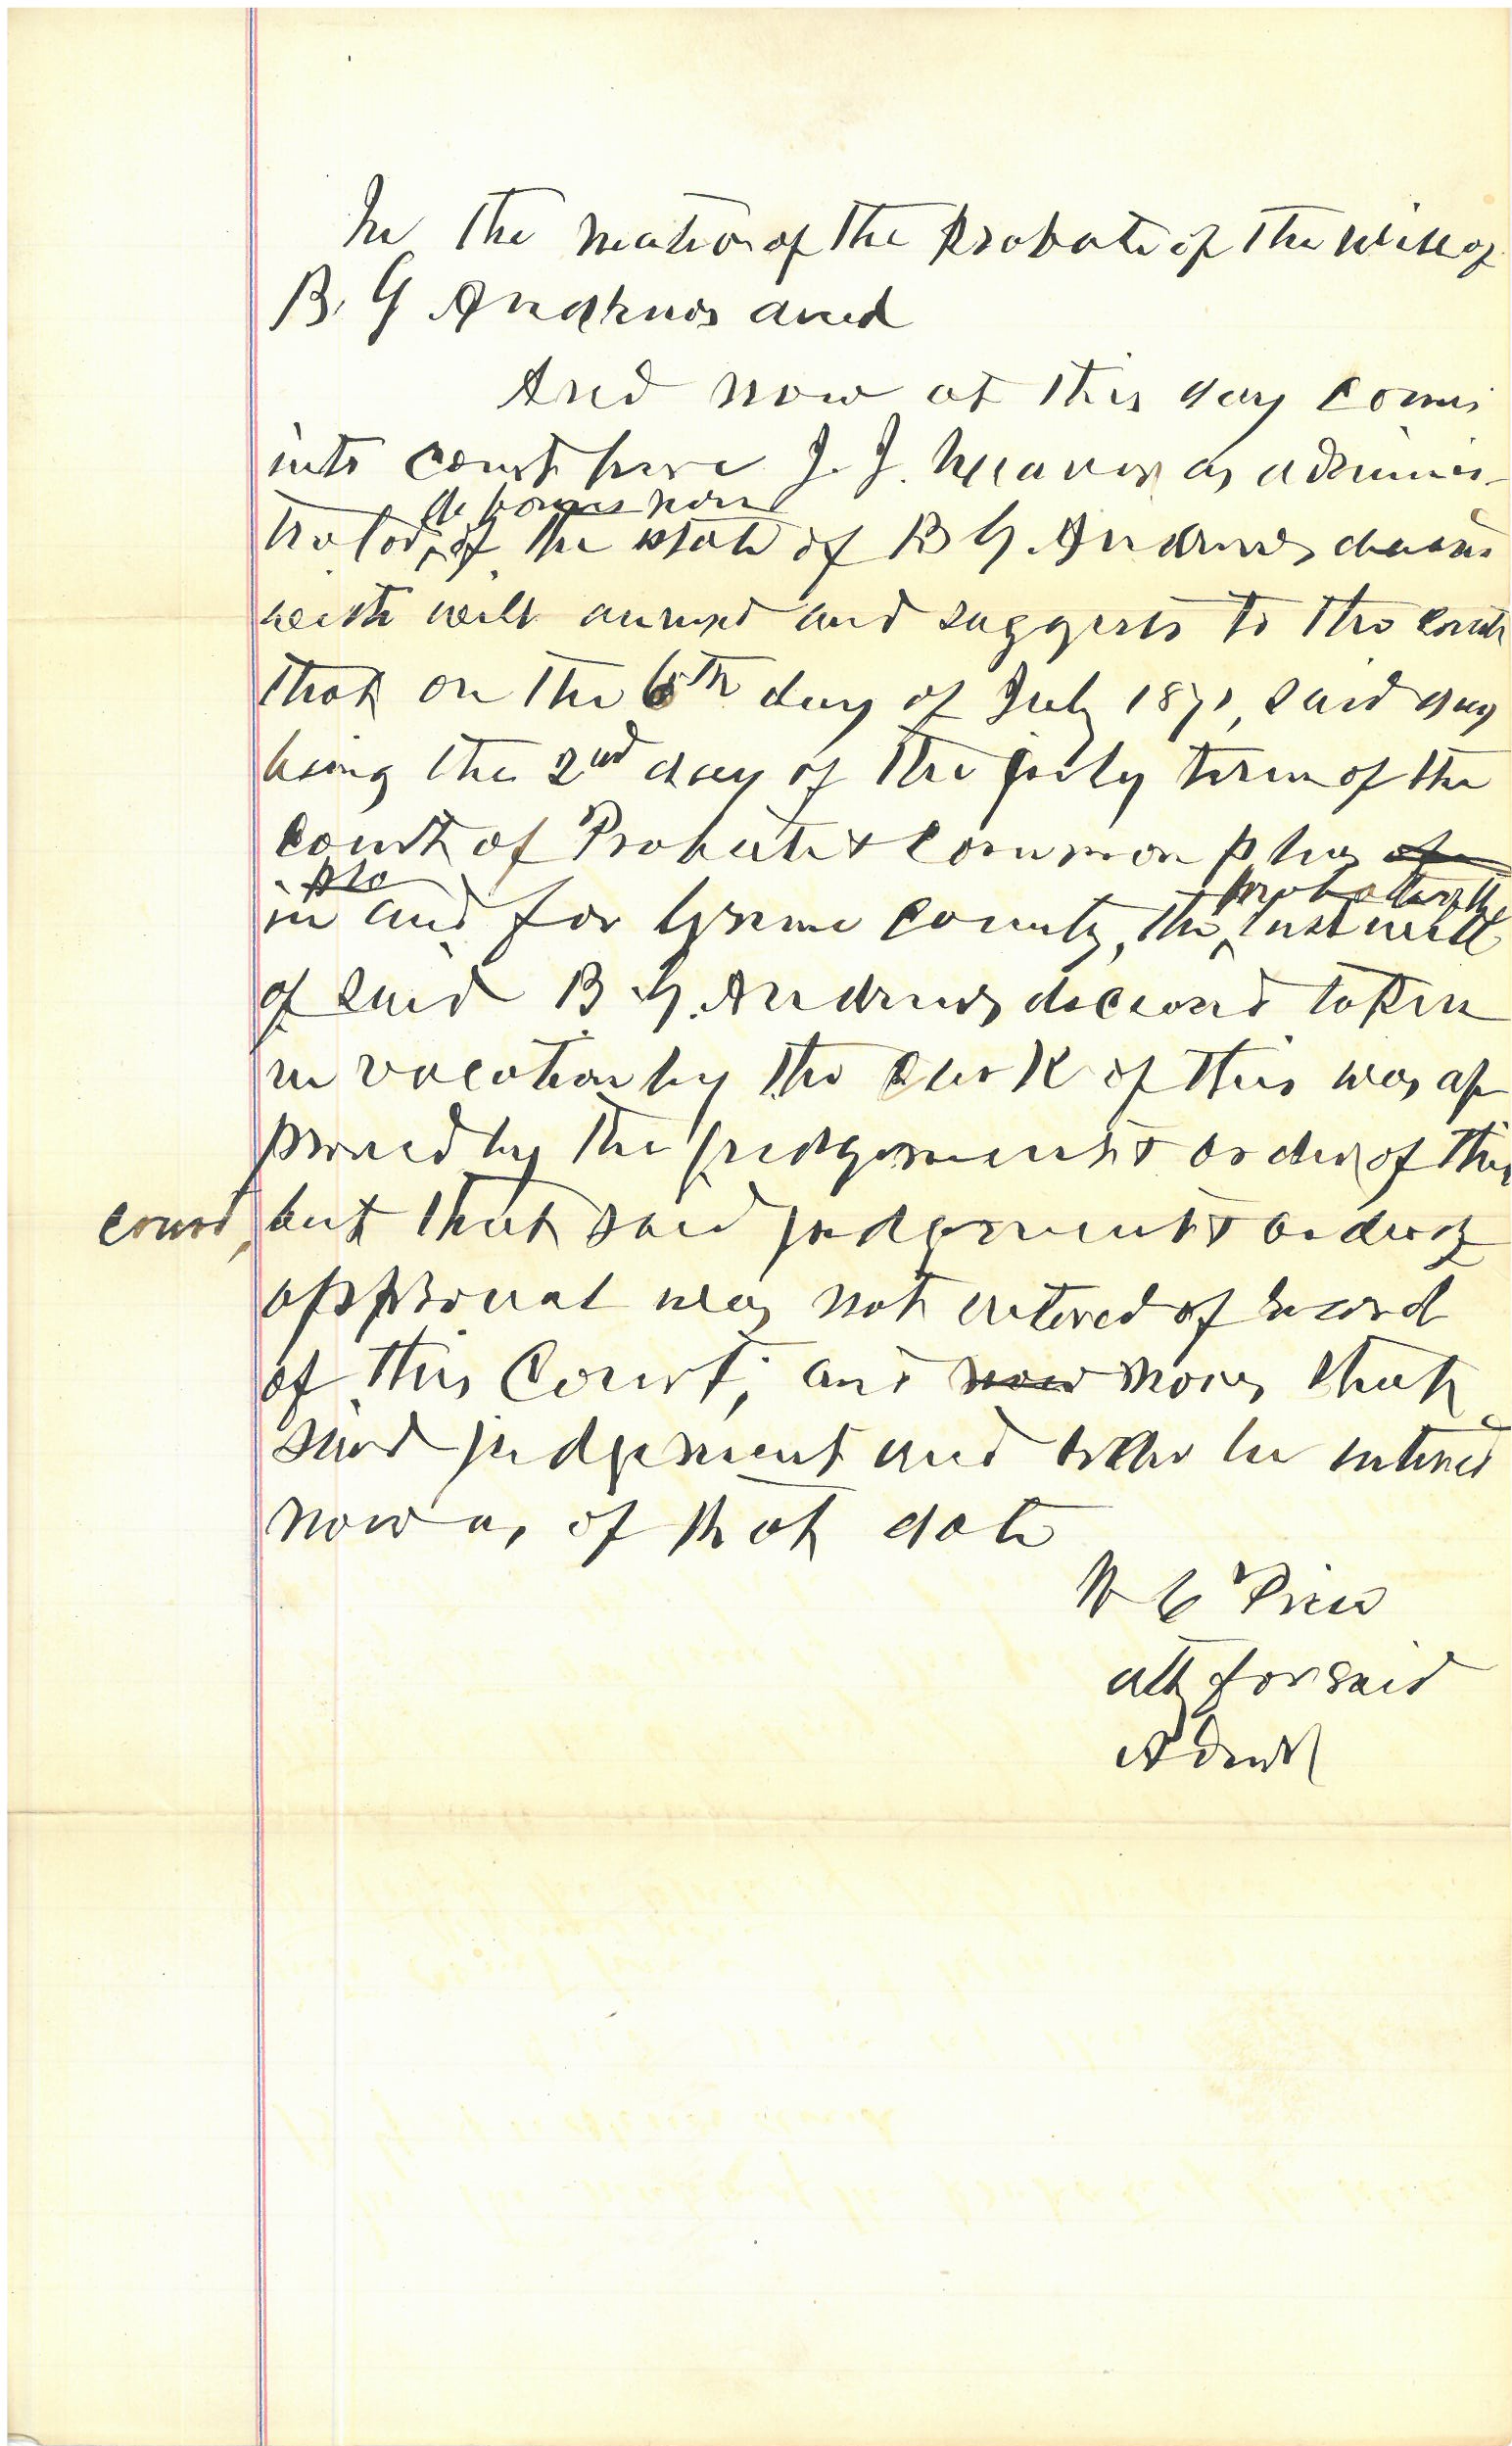 In the matter of the probate of the will of
B. G Andrews decd
And now at this day comes
into court here J. J. Weaver as adminis-
de bonis non
trator, of the estate of B G. Andrews deceased
with will annexed and suggests to the court
that on the 6th day of July 1871, said day
being the 2nd day of the July term of the
court of Probate & Common pleas of
in and for Greene County, the last will
probate of the
of said B. G. Andrews deceased taken
in vacation by the clerk of this was ap
proved by the judgement & order of this
court, but that said judgement & order of
approval was not entered of record
of this Court; and now moves that
said judgement and order be entered
now as of that date
W C Price
atty for said
Admr